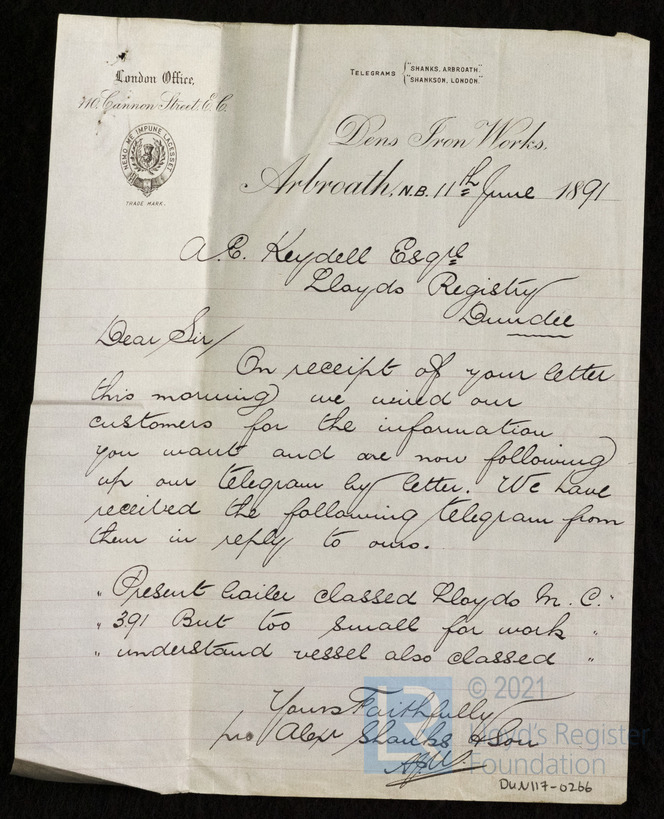 London Office,
110, Cannon Street, E.C.
NEMO ME IMPUNE LACESSET
TRADE MARK.
TELEGRAMS { "SHANKS, ARBROATH."
"SHANKSON, LONDON."
Dens Iron Works,
Arbroath, N.B. 11th June 1891
A.E. Keydell Esqre
Lloyds Registry
Dundee
Dear Sir/
On receipt of your letter
this morning we wired our
customers for the information
you want and are now following
up our telegram by letter. We have
received the following telegram from
them in reply to ours.
"Present boiler classed Lloyds M. C."
" 391 But too small for work "
" understand vessel also classed "
Yours Faithfully
pro Alexr Shanks & Son
© 2021
Lloyd's Register
Foundation
DUN117-0266